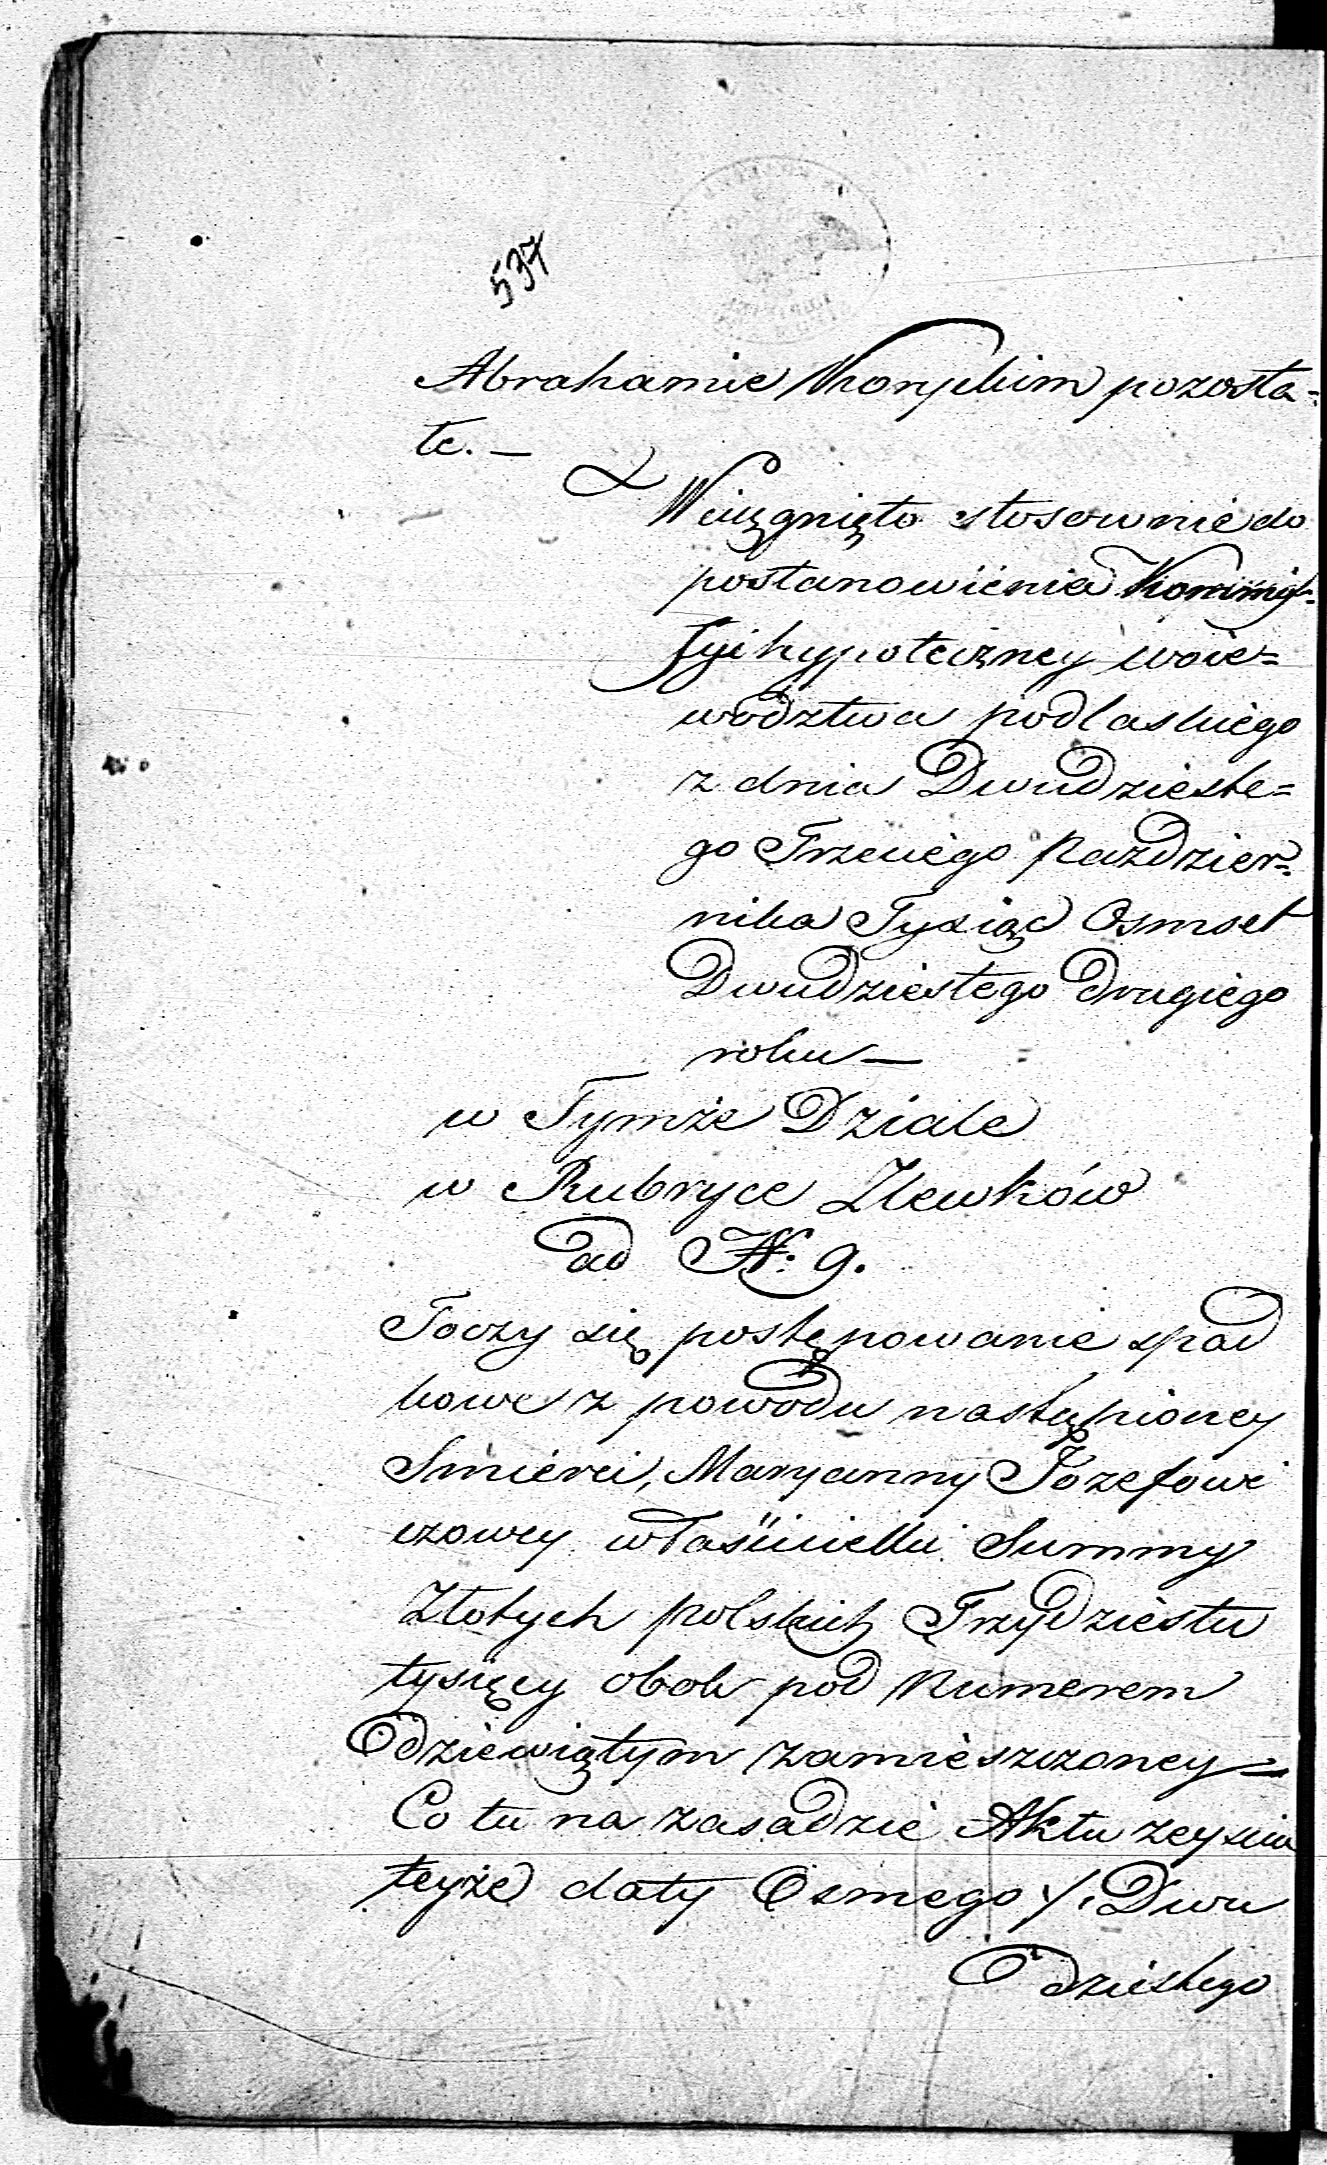 537
Abrahamie Koryckim pozosta=
łe. —
Wciągnięto stosownie do
postanowienia Kommis=
syi hypoteczney woie=
wództwa podlaskiego
z dnia Dwudzieste=
go Trzeciego Paździer=
nika Tysiąc Osmset
Dwudziestego drugiego
roku —
w Tymże Dziale
w Rubryce Zlewków
ad N: 9.
Toczy się postępowanie spad
kowe z powodu nastąpioney
Smierci, Maryanny Józefowi
czowey właścicielki Summy
Złotych polskich Trzydziestu
tysięcy obok pod Numerem
dziewiątym zamieszczoney —
Co tu na zasadzie Aktu
teyże daty Osmego /: Dwu
dziestego